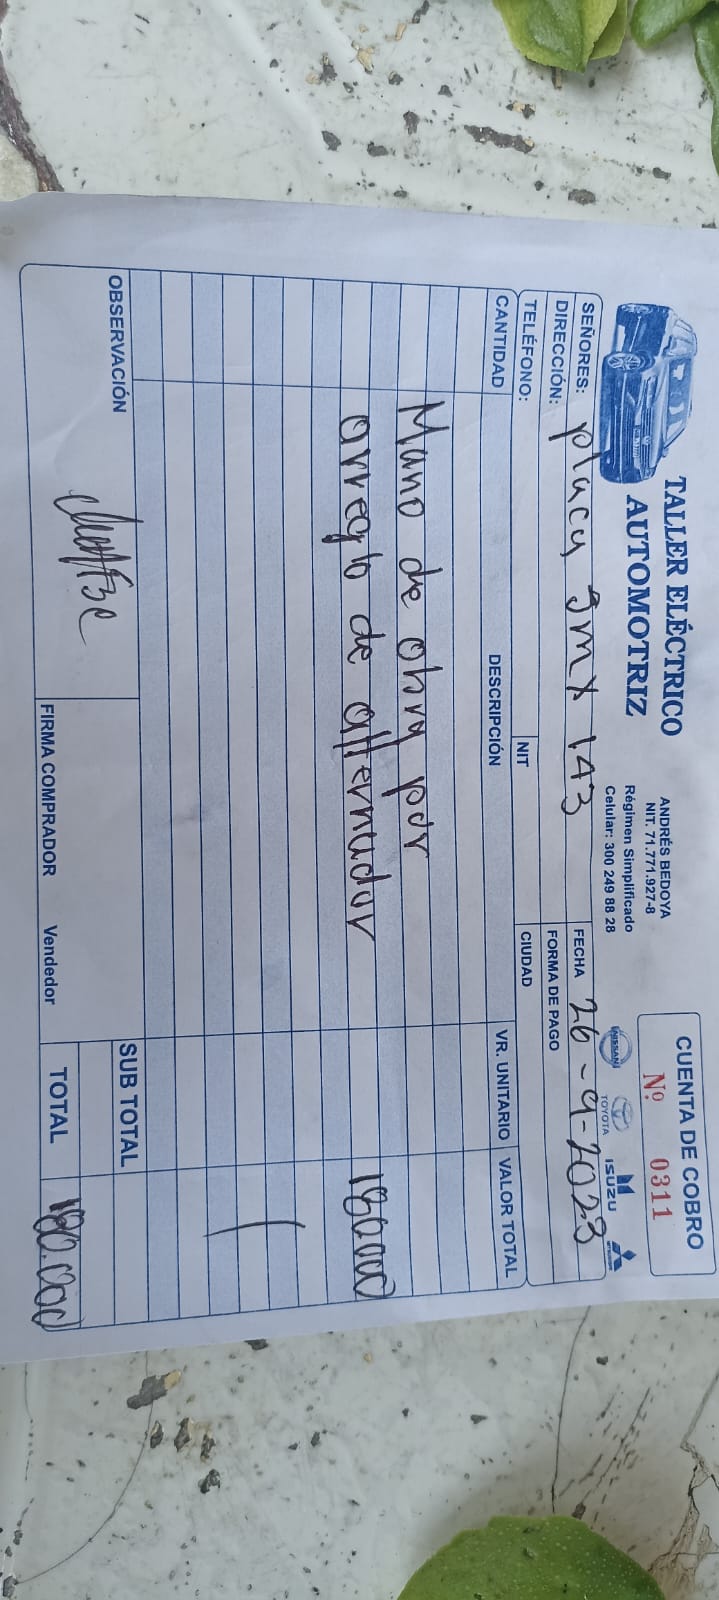 TALLER ELÉCTRICO
AUTOMOTRIZ
ANDRÉS BEDOYA
NIT. 71.771.927-8
Régimen Simplificado
Celular: 300 249 88 28
CUENTA DE COBRO
Nº 0311
NISSAN TOYOTA ISUZU
SEÑORES: placa JMX 143 FECHA 26-9-2023
DIRECCIÓN: FORMA DE PAGO
TELÉFONO: NIT CIUDAD
CANTIDAD DESCRIPCIÓN VR. UNITARIO VALOR TOTAL
Mano de obra por
arreglo de alternador 180000
OBSERVACIÓN SUB TOTAL
FIRMA COMPRADOR Vendedor TOTAL 180.000